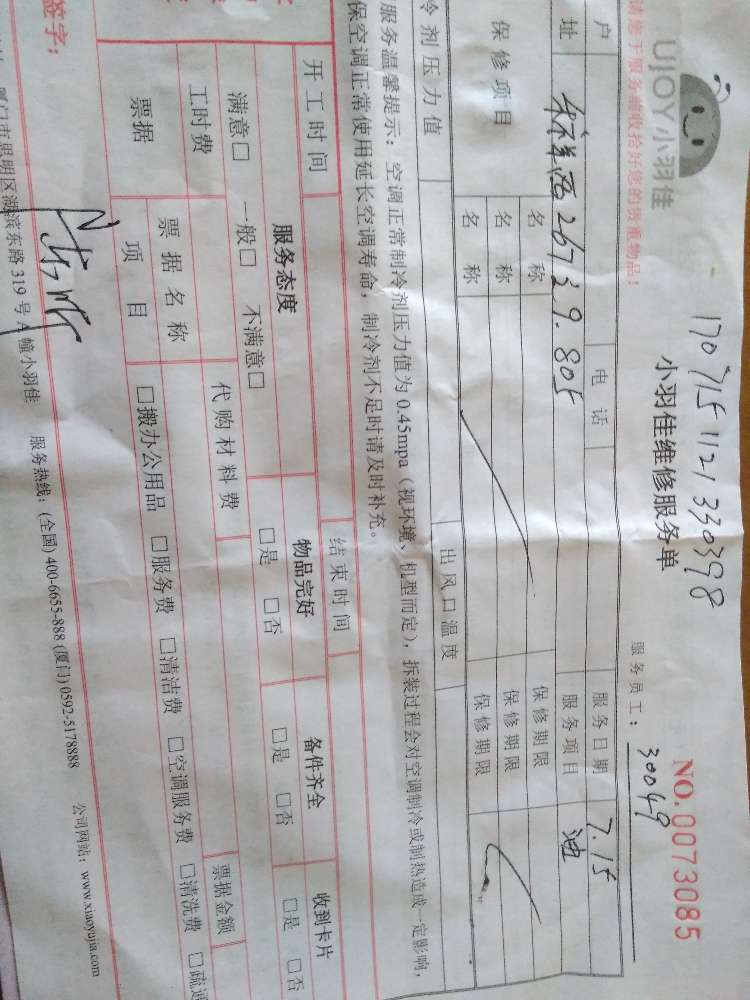 UJOY小羽佳
170715112133398
小羽佳维修服务单
NO.0073085
请您于服务前收拾好您的贵重物品！
服务员工：30049
户 电话 服务日期 7.15
址 267 29.805 服务项目 油
保修项目 名称 保修期限
名称 保修期限
名称 保修期限
冷剂压力值 出风口温度
服务温馨提示：空调正常制冷剂压力值为0.45mpa（视环境、机型而定），拆装过程会对空调制冷或制热造成一定影响，
保空调正常使用延长空调寿命，制冷剂不足时请及时补充。
开工时间 结束时间
服务态度 物品完好 备件齐全 收到卡片
满意□ 一般□ 不满意□ □是 □否 □是 □否 □是 □否
工时费 代购材料费 票据金额
票据 票据名称
项目 □搬办公用品 □服务费 □清洁费 □空调服务费 □清洗费 □疏通
签字：
厦门市思明区湖滨东路319号A幢小羽佳 服务热线：(全国) 400-6655-888 (厦门) 0592-5178888 公司网站：www.xiaoyujia.com